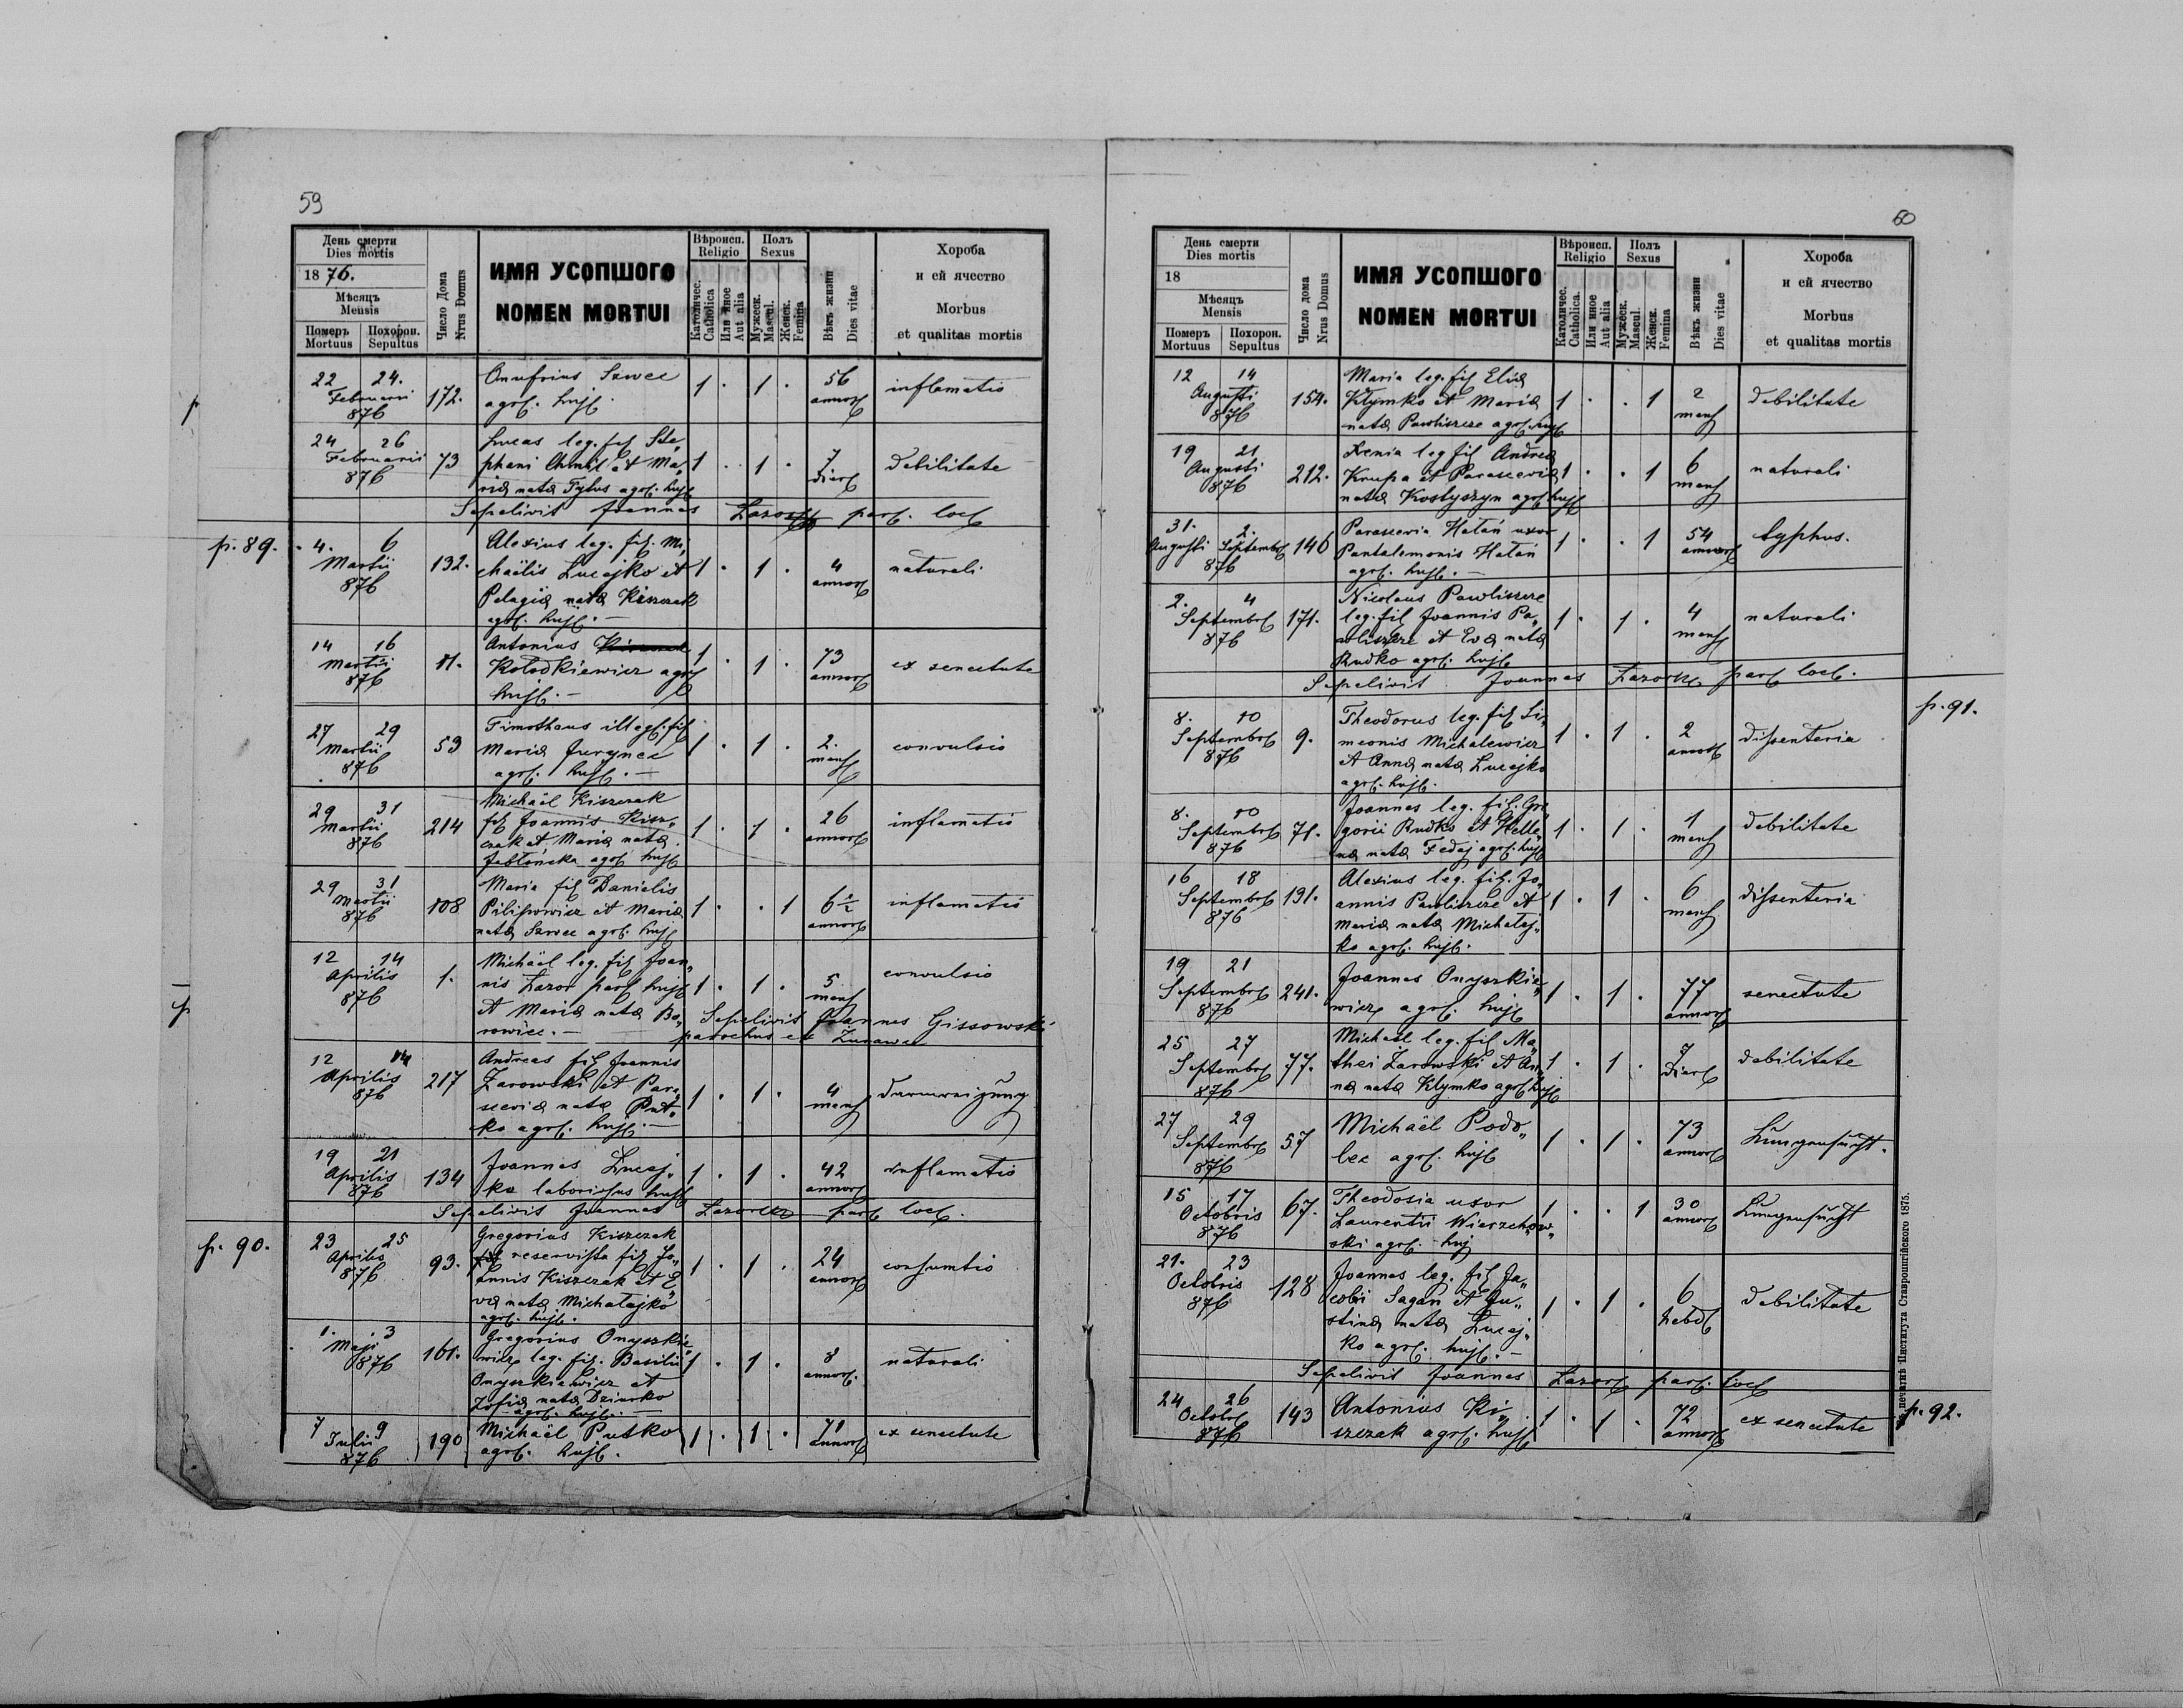 59
День смерти
Dies mortis
1876.
Мѣсяцъ
Mensis
Померъ Mortuus
Похорон. Sepultus
Число Дома
Nrus Domus
ИМЯ УСОПШОГО
NOMEN MORTUI
Вѣроисп.
Religio
Католичес. Catholica
Или иное Aut alia
Полъ
Sexus
Мужеск. Mascul.
Женск. Femina
Вѣкъ жизни
Dies vitae
Хороба
и ей ячество
Morbus
et qualitas mortis
22 24. Februarii 876 172. Onufrius Szwec
agr. huj. 1 . 1 . 56 annor inflamatio
24 26 Februarii 876 73 Lucas leg. fil Ste„
phani Chmil et Ma„
ria nata Tylus agr. huj 1 . 1 . 7 dier debilitate
Sepelivit Joannes Lazorek par. loc
p. 89.
4. 6 Martii 876 132. Alexius leg. fil. Mi„
chaëlis Lucajko et
Pelagia nata Kiszczak
agr. huj. — 1 . 1 . 4 annor naturali
14 16 Martii 876 11. Antonius
Kołodkiewicz agr
huj. — 1 . 1 . 73 annor ex senectute
27 29 Martii 876 53 Timotheus illeg. fil
Maria Jurynec
agr. huj. — 1 . 1 . 2. mens convulsio
29 31 Martii 876 214 Michaël Kiszczak
fil Joannis Kisz„
czak et Maria nata
Jabłońska agr huj 1 . 1 . 26 annor inflamatio
29 31 Martii 876 108 Maria fil Danielis
Pilipowicz et Maria
nata Szwec agr. huj 1 . . 1 6 1/2 annor inflamatio
12 14 Aprilis 876 1. Michaël leg. fil Joan„
nis Lazor par huj
et Maria nata Bo„
rowiec. — 1 . 1 . 5 mens convulsio
Sepelivit Joannes Gissowski
parochus
12 14 Aprilis 876 217 Andreas fil Joannis
Żarowski et Para„
scevia nata Put„
ko agr. huj. — 1 . 1 . 4 mens
19 21 Aprilis 876 134 Joannes Lucaj„
ko laboriosus huj 1 . 1 . 42 annor inflamatio
Sepelivit Joannes Lazorek par loc.
p. 90.
23 25 Aprilis 876 93. Gregorius Kiszczak
reservista fil Jo„
annis Kiszczak et E„
va nata Michałajko
agr. huj. 1 . 1 . 24 annor consumtio
1. 3 Maji 876 161. Gregorius Onyszkie„
wicz leg. fil. Basilii
Onyszkiewicz et
Zofia nata Dziurko
agr. huj. — 1 . 1 . 8 annor. naturali
7 9 Julii 876 190 Michaël Putko
agr. huj. 1 . 1 . 71 annor ex senectute
60
День смерти
Dies mortis
18
Мѣсяцъ
Mensis
Померъ Mortuus
Похорон. Sepultus
Число дома
Nrus Domus
ИМЯ УСОПШОГО
NOMEN MORTUI
Вѣроисп.
Religio
Католичес. Catholica.
Или иное Aut alia
Полъ
Sexus
Мужеск. Mascul.
Женск. Femina
Вѣкъ жизни
Dies vitae
Хороба
и ей ячество
Morbus
et qualitas mortis
12 14 Augusti 876 154. Maria leg. fil Elia
Klymko et Maria
nata Pawliszcze agr. huj 1 . . 1 2 mens debilitate
19 21 Augusti 876 212. Xenia leg fil Andrea
Krupa et Parascevia
nata Kostyszyn agr huj 1 . . 1 6 mens naturali
31. Augusti 2. Septembr 876 146 Parascevia Hałań uxor
Pantalemonis Hałań
agr. huj. — 1 . . 1 54 annor typhus.
2. 4 Septembr 876 171. Nicolaus Pawliszcze
leg. fil Joannis Pa„
wliszcze et Eva nata
Rudko agr. huj 1 . 1 . 4 mens naturali
Sepelivit Joannes Lazorek par loc.
p. 91.
8. 10 Septembr 876 9. Theodorus leg. fil Si„
meonis Michalewicz
et Anna nata Lucajko
agr. huj. 1 . 1 . 2 annor dissenteria
8. 10 Septembr 876 71. Joannes leg. fil. Gre
gorii Rudko et Hele„
na nata Fedaj agr. huj 1 . 1 . 1 mens debilitate
16 18 Septembr 876 131. Alexius leg. fil. Jo„
annis Pawliszcze et
Maria nata Michałaj„
ko agr. huj. 1 . 1 . 6 mens dissenteria
19 21 Septembr 876 241. Joannes Onyszkie„
wicz agr. huj 1 . 1 . 77 annor senectute
25 27 Septembr 876 77. Michaël leg. fil Ma„
thei Żarowski et An„
na nata Klymko agr huj 1 . 1 . 7 dier debilitate
27 29 Septembr 876 57 Michaël Podo„
lec agr. huj 1 . 1 . 73 annor Lungensucht.
15 17 Octobris 876 67. Theodosia uxor
Laurentii Wierzchow„
ski agr. huj 1 . . 1 30 annor Lungensucht
21. 23 Octobris 876 128 Joannes leg. fil Ja„
cobi Sagan et Ju„
stina nata Lucaj„
ko agr. huj. — 1 . 1 . 6 hebd debilitate
Sepelivit Joannes Lazor par. loc
24 26 Octobr 876 143 Antonius Ki„
szczak agr. huj 1 . 1 . 72 annor ex senectute
p. 92.
печатнѣ Института Ставропигійского 1875.